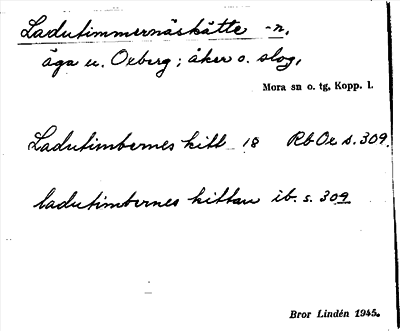 Ladutimmernäskätte -n,
äga u. Oxberg; åker o. slog,
Mora sn o. tg, Kopp. l.
Ladutimbernes kitt 18 Rb Ox s. 309.
ladutimbernes kittan ib. s. 309
Bror Lindén 1945.